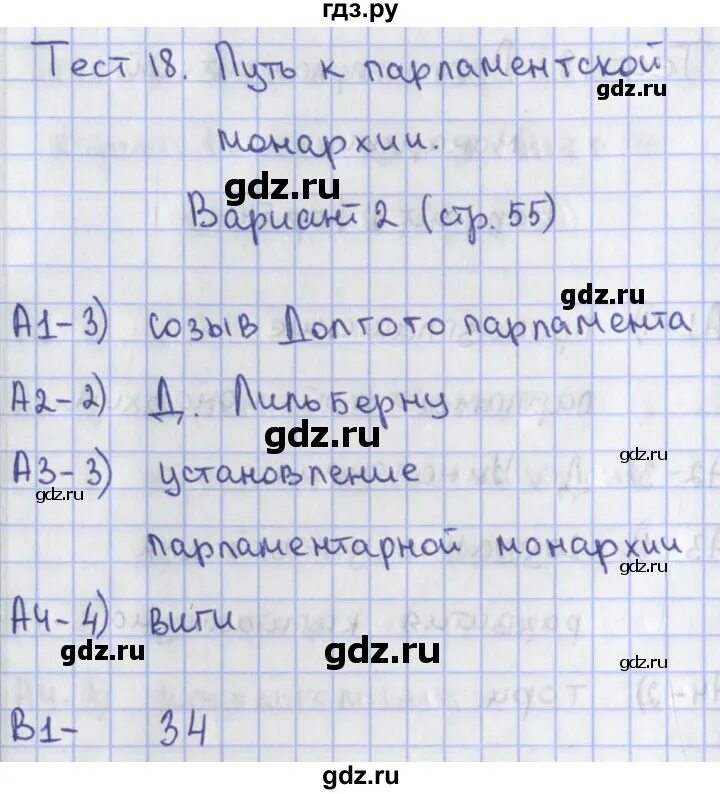 гдз.ру
Тест 18. Путь к парламентской
gdz.ru
монархии.
gdz.ru
Вариант 2 (стр. 55)
gdz.ru
А1-3) созыв Долгого парламента
А2-2) Д. Лильберну
gdz.ru
gdz.ru
А3-3) установление
gdz.ru
парламентарной монархии
gdz.ru
А4-4) виги
gdz.ru
gdz.ru
gdz.ru
В1- 34
gdz.ru